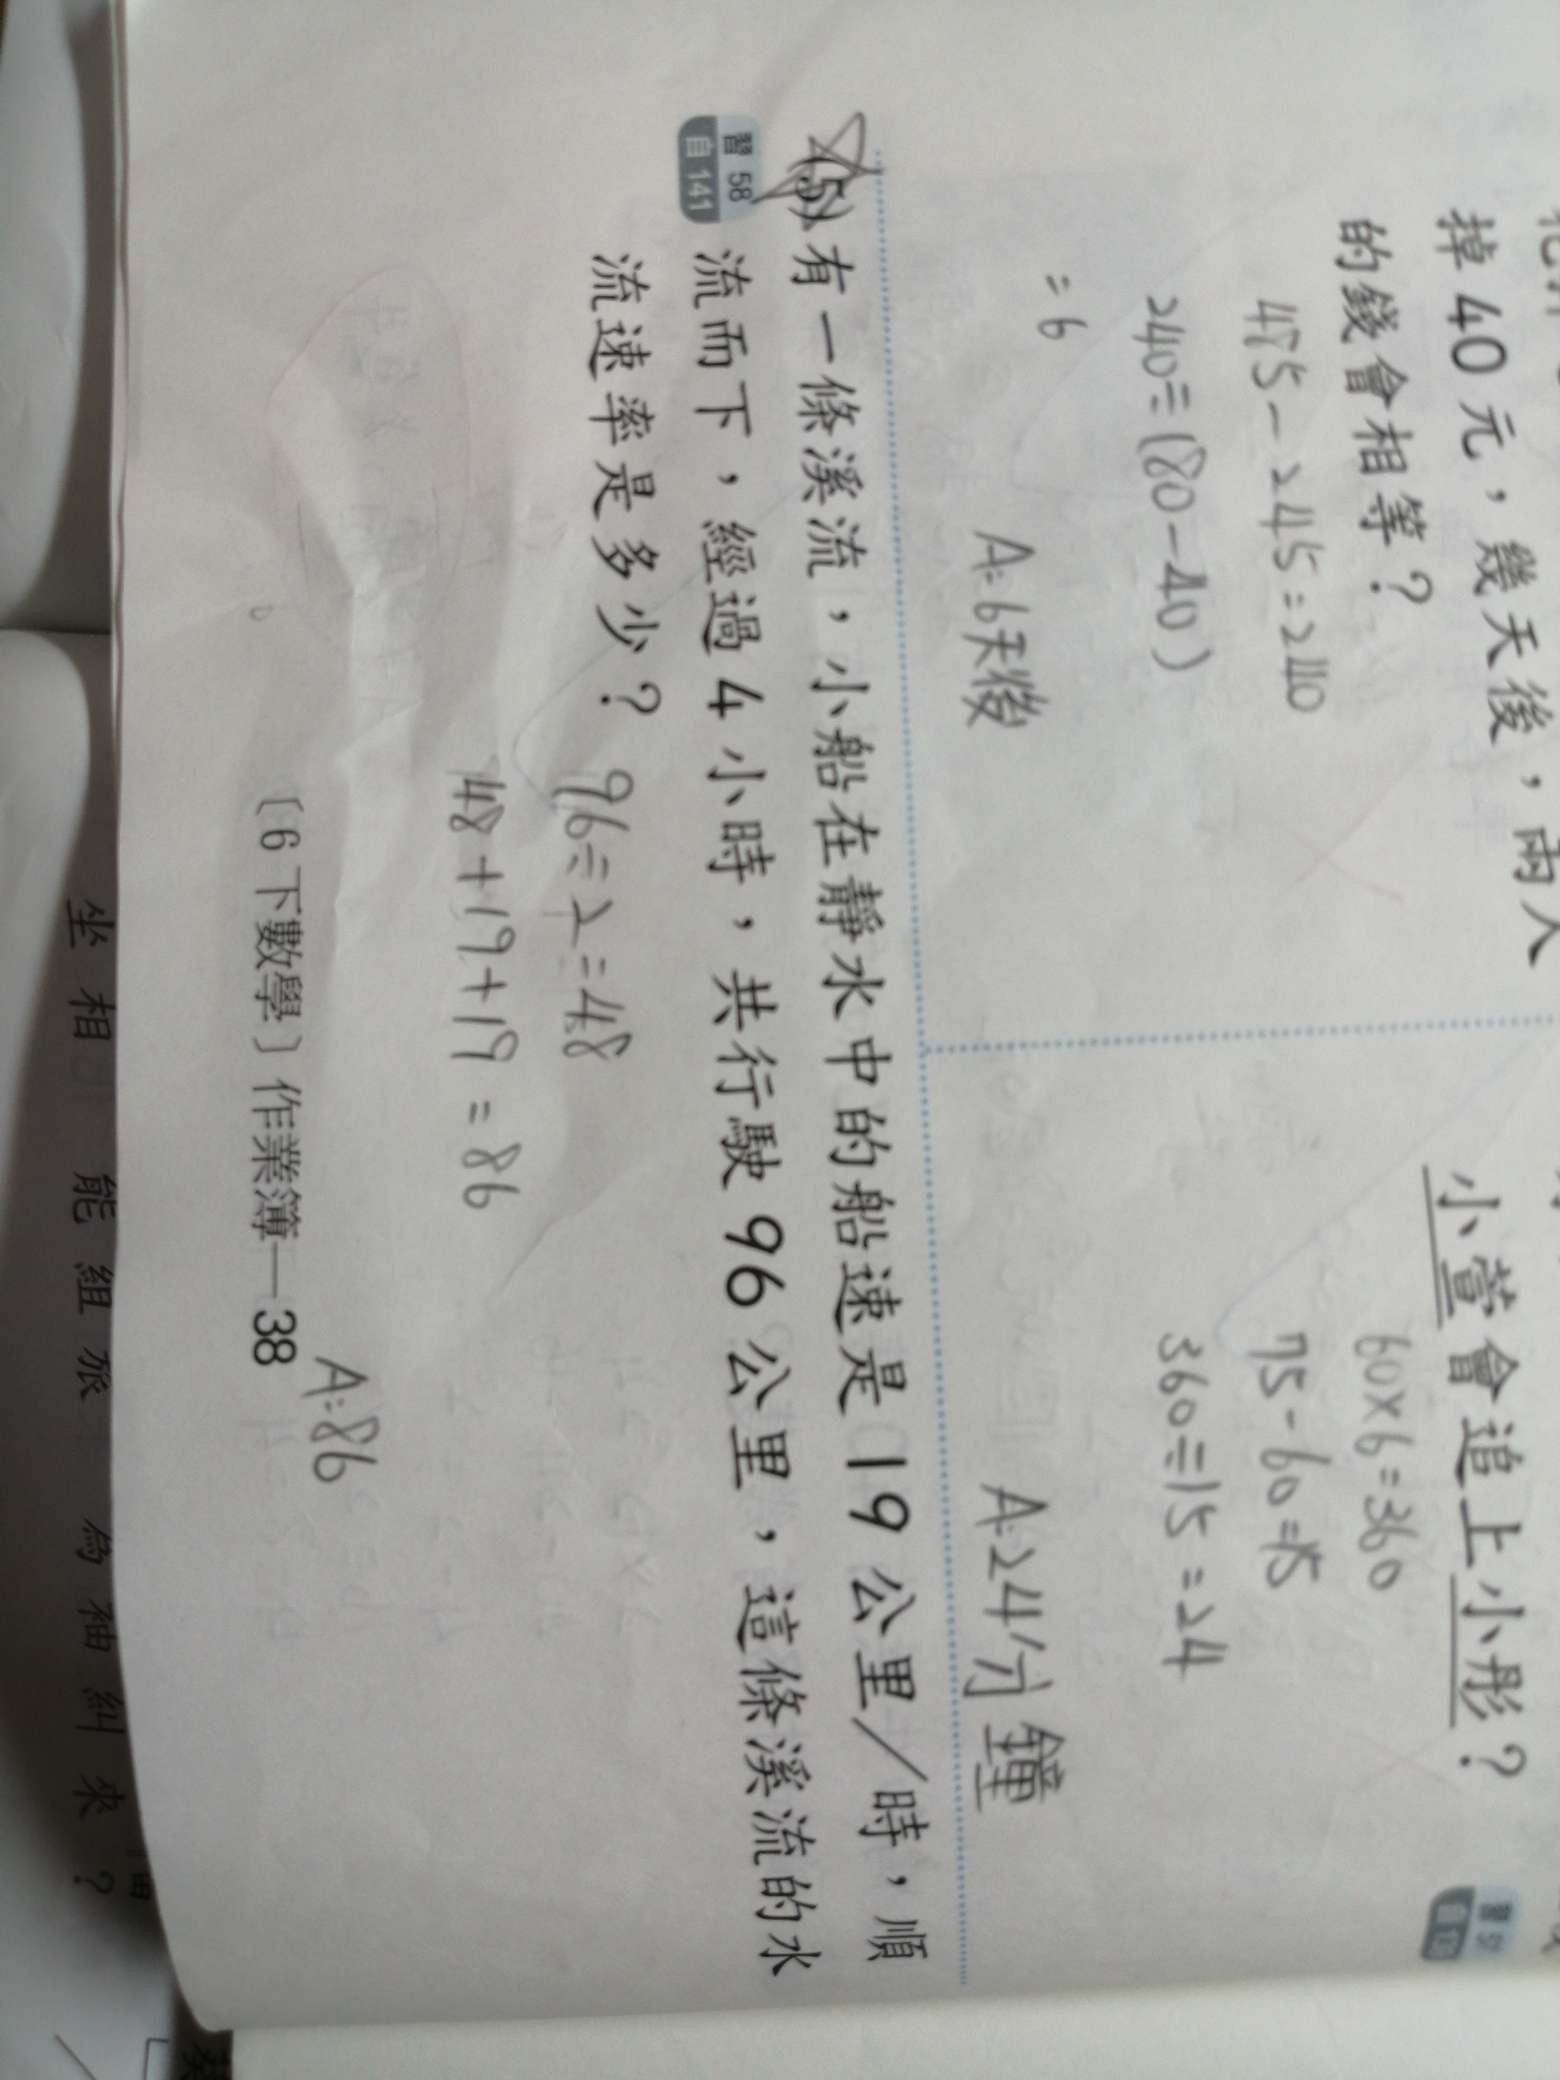 掉40元，幾天後，兩人
的錢會相等？
485-245=240
240÷(80-40)
=6
A:6天後
小萱會追上小彤？
60×6=360
75-60=15
360÷15=24
A:24分鐘
(5)有一條溪流，小船在靜水中的船速是19公里／時，順
流而下，經過4小時，共行駛96公里，這條溪流的水
流速率是多少？
習 58
自 141
96÷2=48
48+19+19=86
A:86
〔6下數學〕作業簿—38